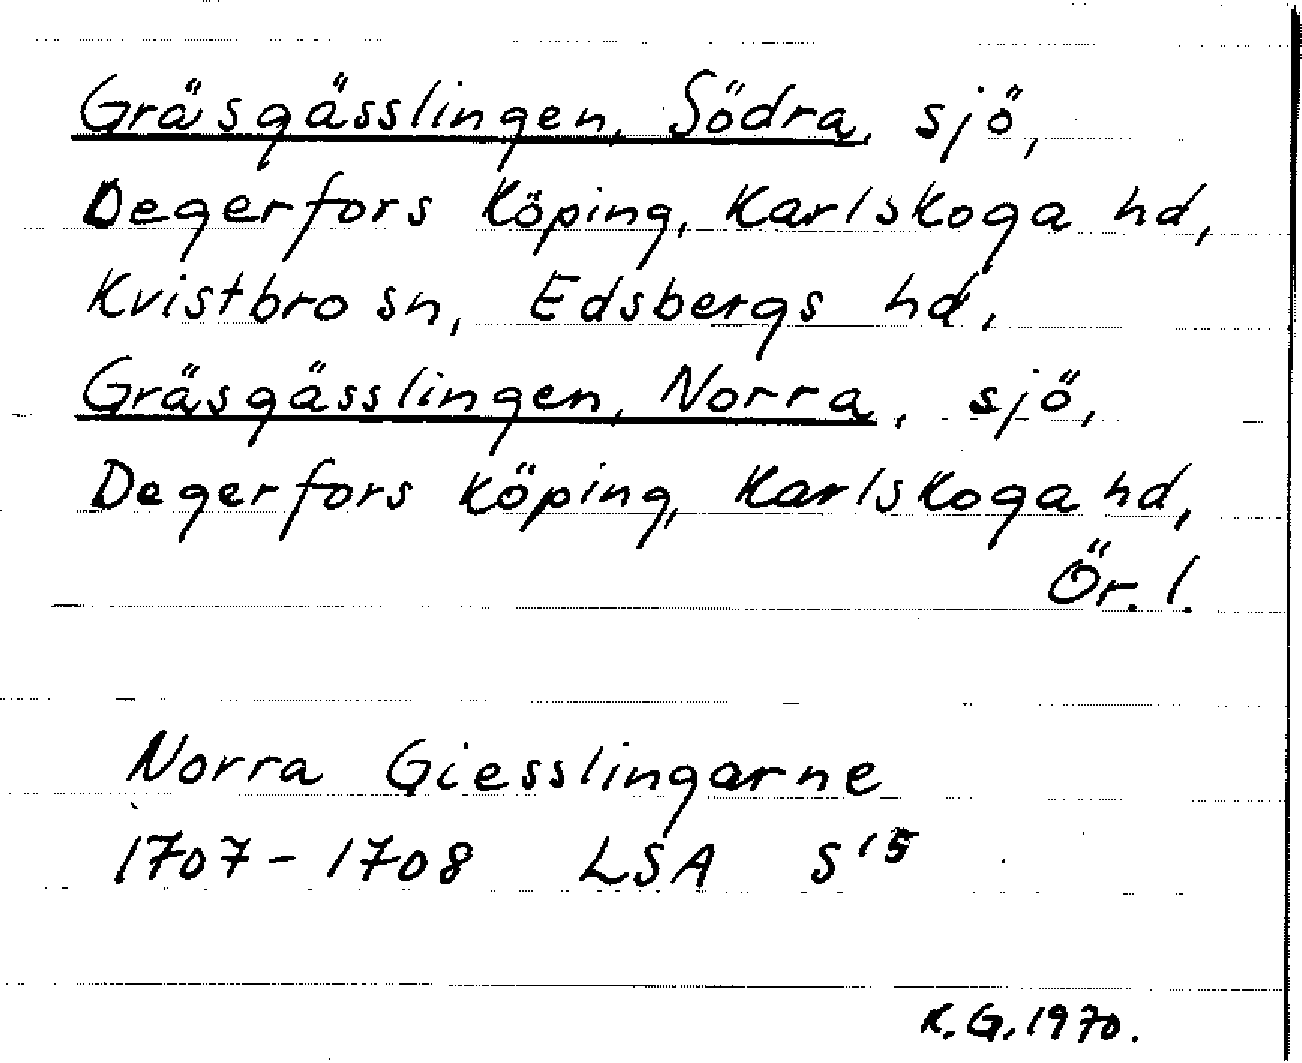 Gräsgässlingen, Södra, sjö,
Degerfors köping, Karlskoga hd,
Kvistbro sn, Edsbergs hd,
Gräsgässlingen, Norra, sjö,
Degerfors köping, Karlskoga hd,
Ör. l.
Norra Giesslingarne
1707-1708 LSA S 15
K.G. 1970.